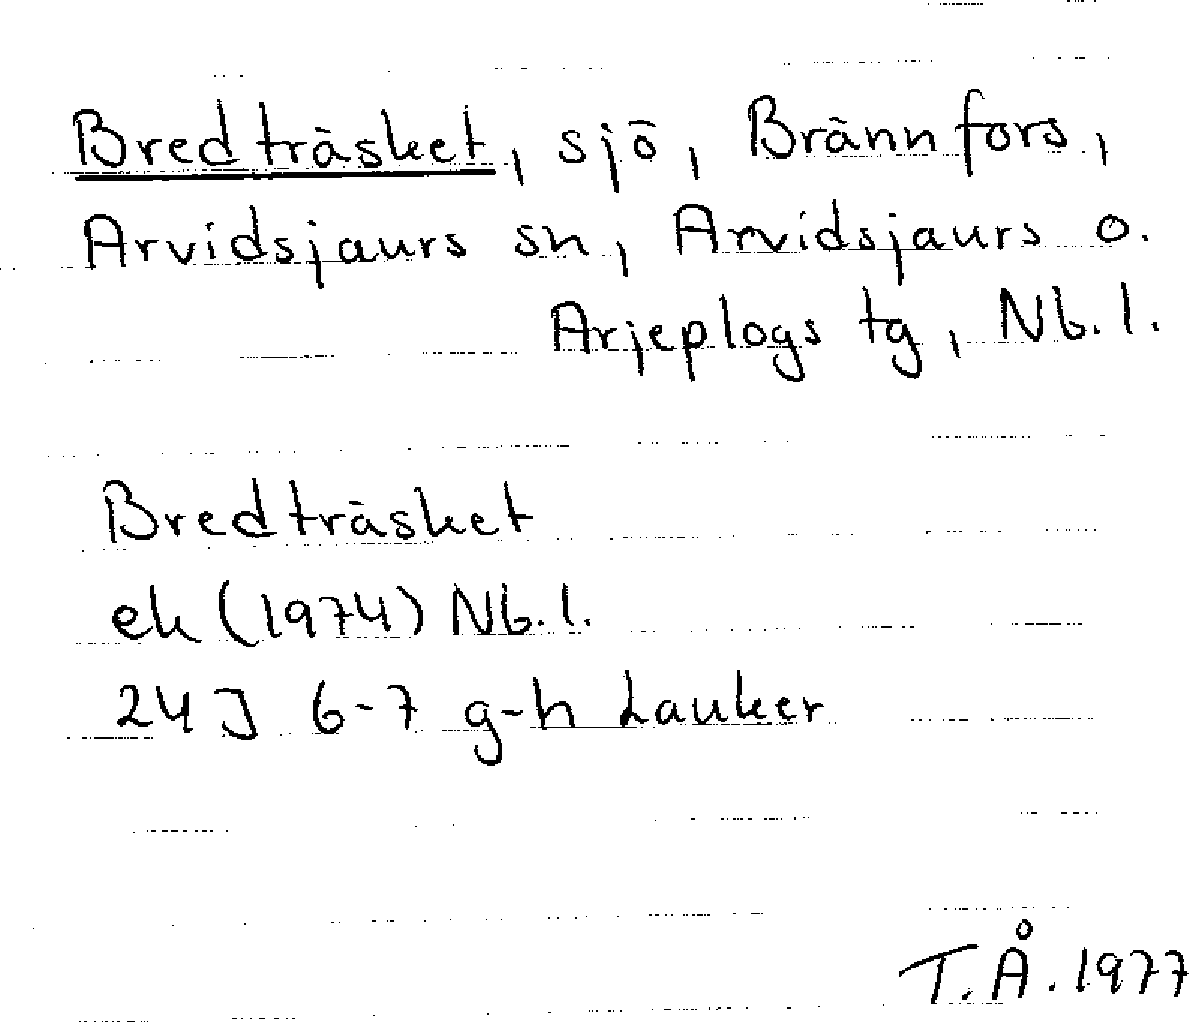 Bredträsket, sjö, Brännfors,
Arvidsjaurs sn, Arvidsjaurs o.
Arjeplogs tg, Nb.l.
Bredträsket
ek (1974) Nb.l.
24J 6-7 g-h Lauker
T.Å. 1977